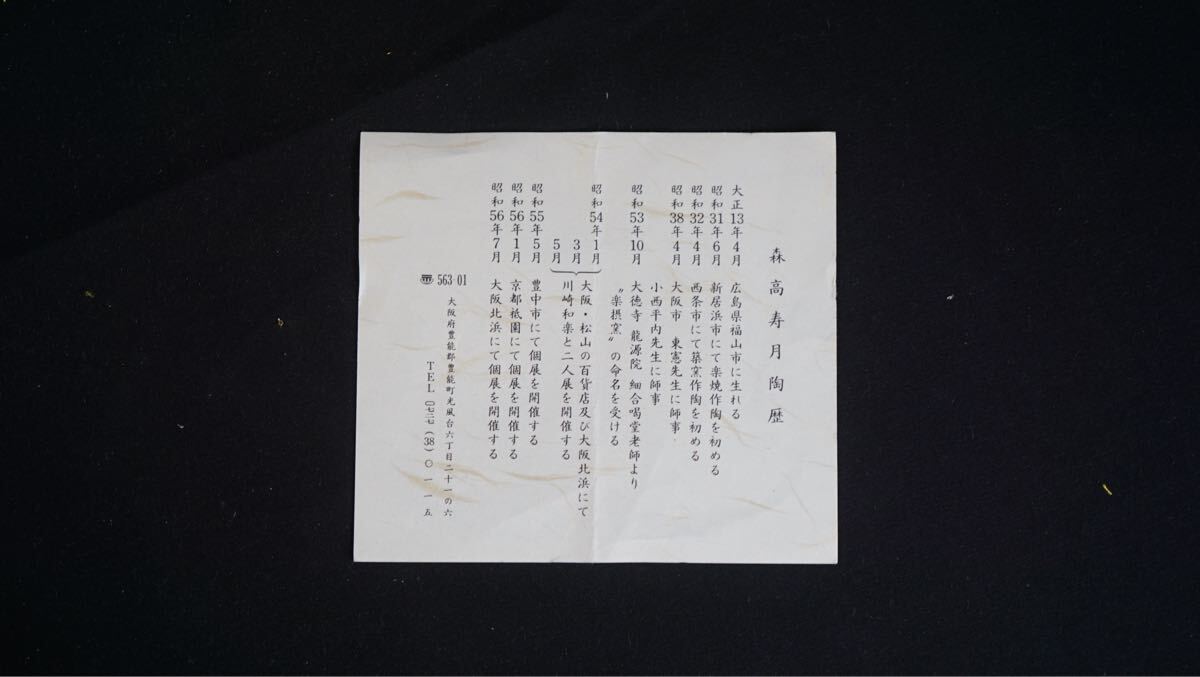 森高寿月陶歴
大正13年4月 広島県福山市に生れる
昭和31年6月 新居浜市にて楽焼作陶を初める
昭和32年4月 西条市にて築窯作陶を初める
昭和38年4月 大阪市 東憲先生に師事
小西平内先生に師事
昭和53年10月 大徳寺 龍源院 細合喝堂老師より
〝楽摂窯〟の命名を受ける
昭和54年1月
3月
5月
大阪・松山の百貨店及び大阪北浜にて
川崎和楽と二人展を開催する
昭和55年5月 豊中市にて個展を開催する
昭和56年1月 京都祇園にて個展を開催する
昭和56年7月 大阪北浜にて個展を開催する
〠563-01
大阪府豊能郡豊能町光風台六丁目二十一の六
TEL〇七二七(38)〇一一五